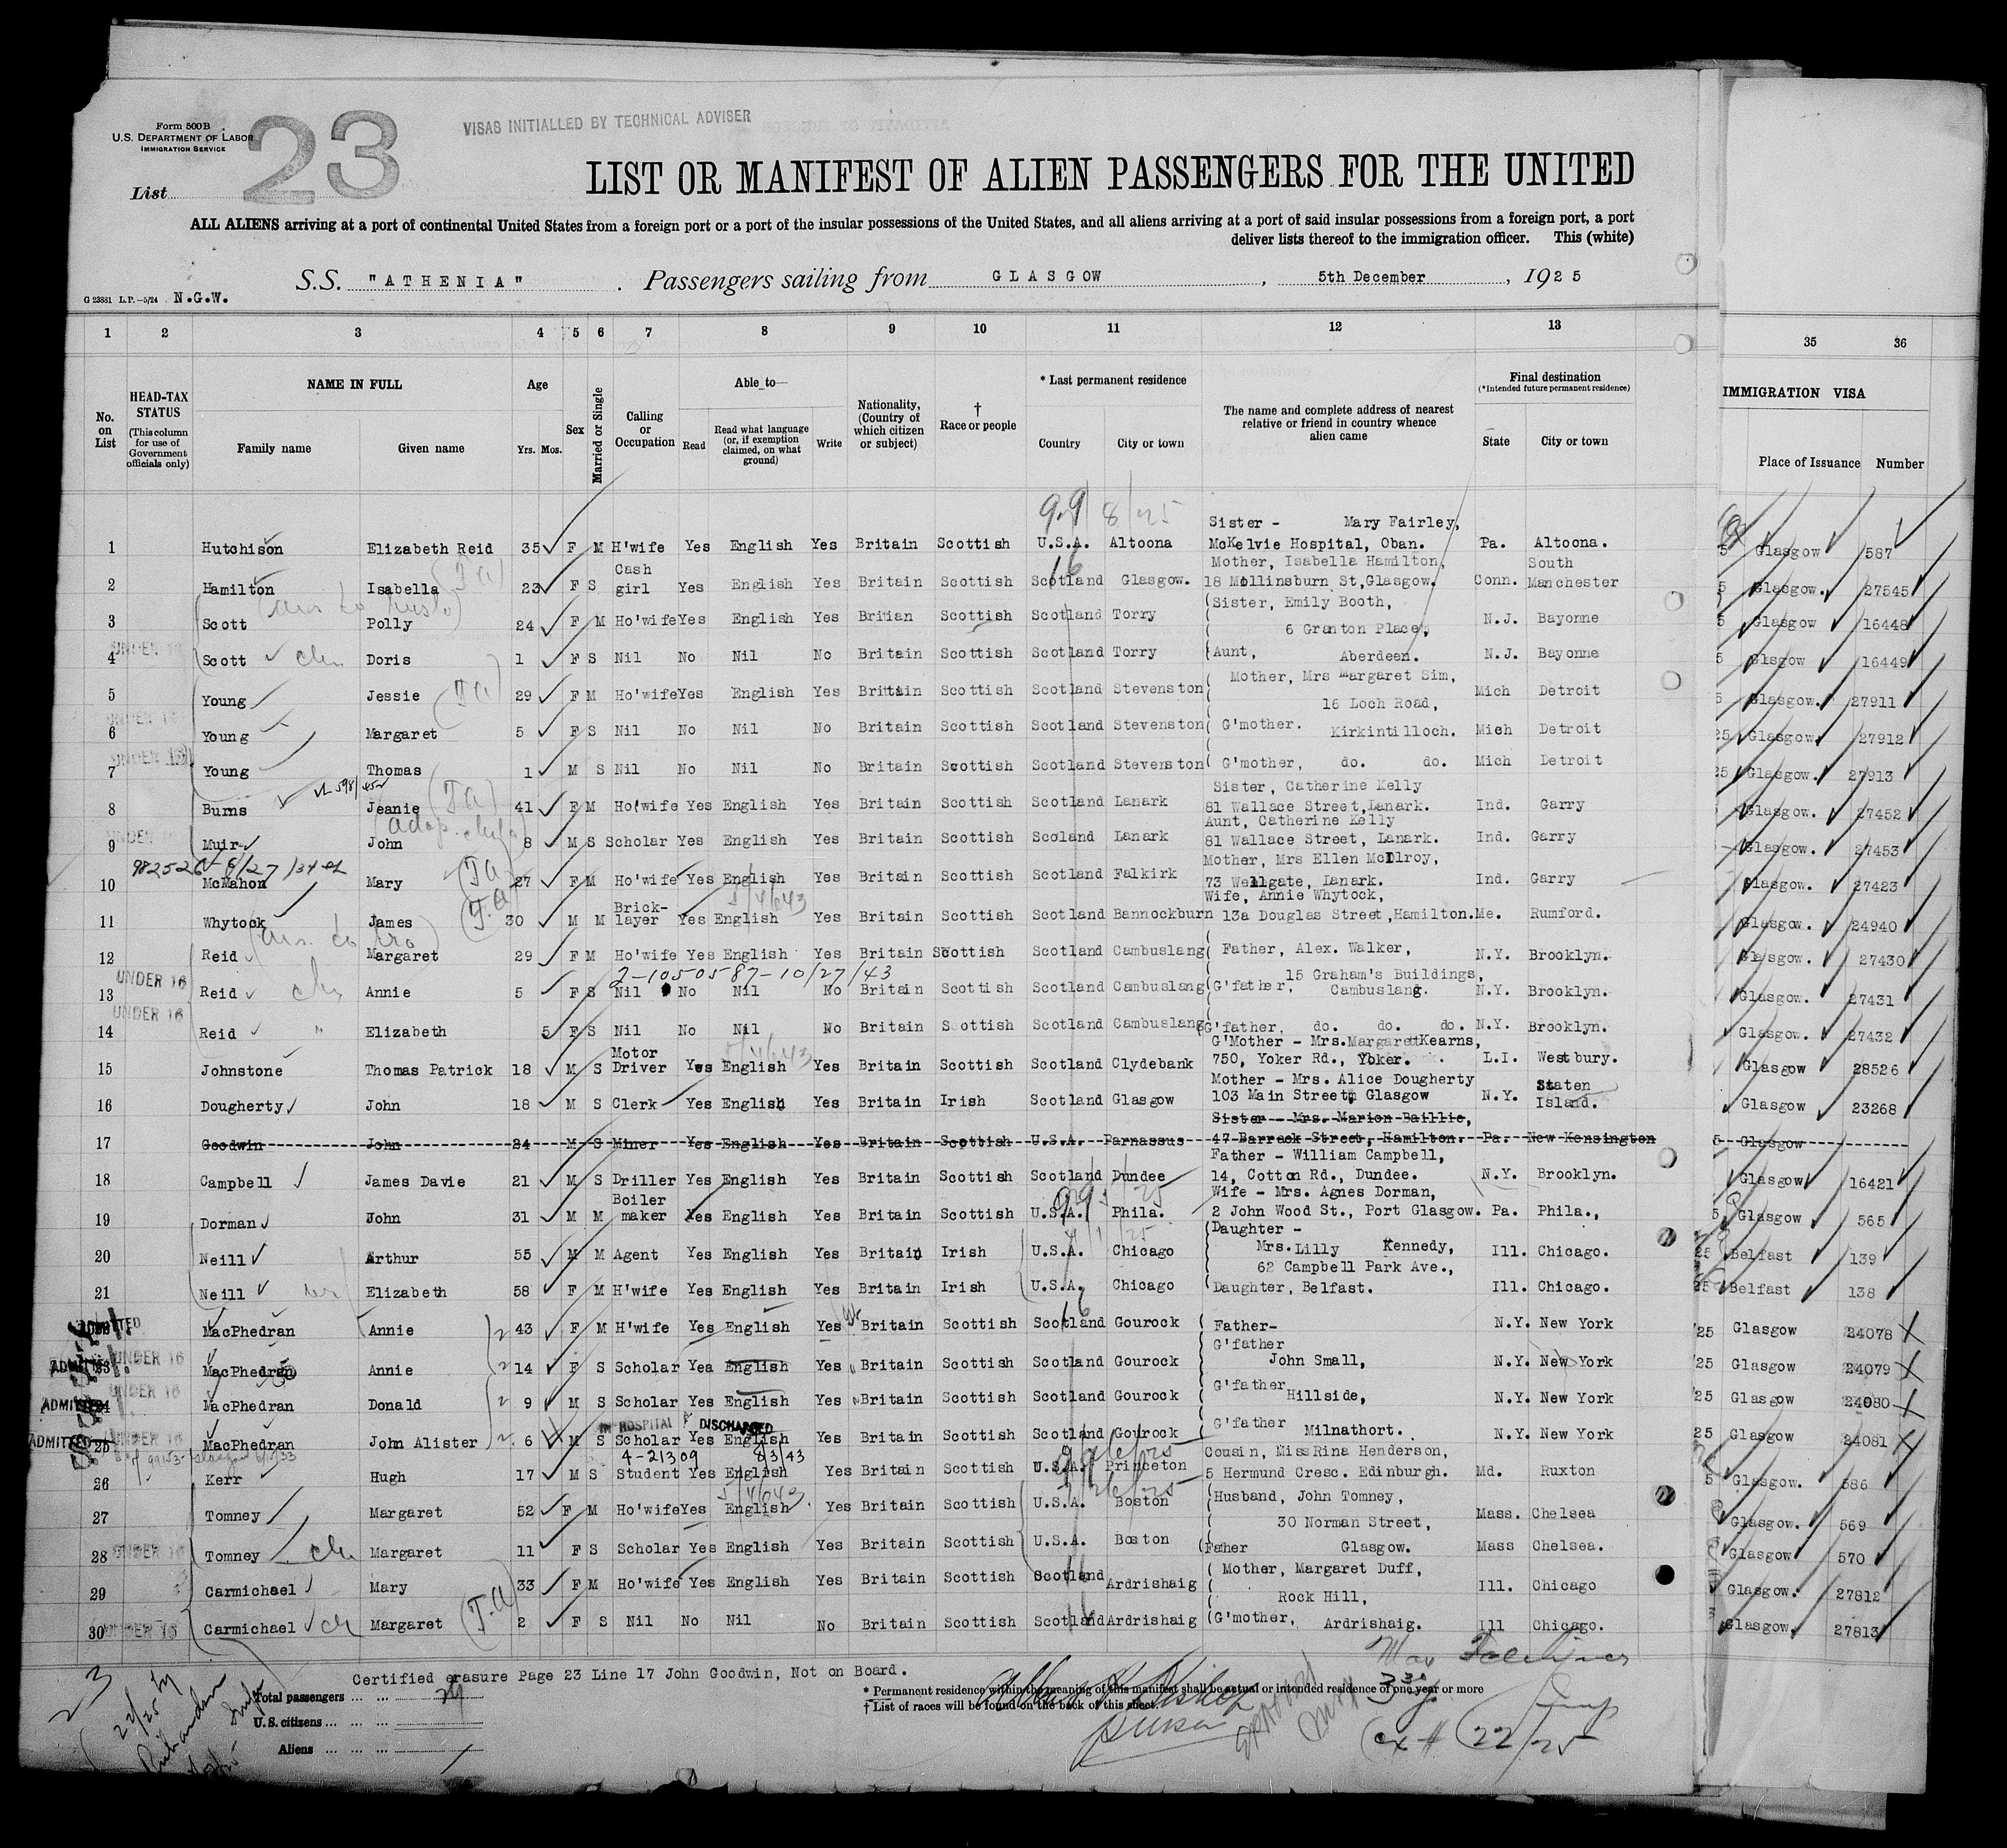 Form 500 B
U.S. DEPARTMENT OF LABOR
IMMIGRATION SERVICE
23
VISAS INITIALLED BY TECHNICAL ADVISER
List
LIST OR MANIFEST OF ALIEN PASSENGERS FOR THE UNITED
ALL ALIENS arriving at a port of continental United States from a foreign port or a port of the insular possessions of the United States, and all aliens arriving at a port of said insular possessions from a foreign port, a port
deliver lists thereof to the immigration officer. This (white)
S.S. "ATHENIA" . Passengers sailing from GLASGOW , 5th December , 1925
G 23881 L.P.—5/24 N.G.W.
1 2 3 4 5 6 7 8 9 10 11 12 13 35 36
No. on List
HEAD-TAX STATUS (This column for use of Government officials only)
NAME IN FULL
Family name Given name
Age
Yrs. Mos.
Sex
Married or Single
Calling or Occupation
Able to—
Read
Read what language (or, if exemption claimed, on what ground)
Write
Nationality, (Country of which citizen or subject)
† Race or people
* Last permanent residence
Country City or town
The name and complete address of nearest relative or friend in country whence alien came
Final destination
(*Intended future permanent residence)
State City or town
IMMIGRATION VISA
Place of Issuance Number
99 8/25
Sister - Mary Fairley,
1 Hutchison Elizabeth Reid 35 F M H'wife Yes English Yes Britain Scottish U.S.A. Altoona McKelvie Hospital, Oban. Pa. Altoona. 5 Glasgow 587
Cash Mother, Isabella Hamilton, South
2 Hamilton Isabella (T a) 23 F S girl Yes English Yes Britain Scottish Scotland Glasgow. 18 Mollinsburn St,Glasgow. Conn. Manchester 5 Glasgow. 27545
(Sister, Emily Booth,
3 Scott Polly 24 F M Ho'wife Yes English Yes Britian Scottish Scotland Torry 6 Granton Place, N.J. Bayonne 5 Glasgow 16448
UNDER 16
4 Scott ch. Doris 1 F S Nil No Nil No Britain Scottish Scotland Torry (Aunt, Aberdeen. N.J. Bayonne 5 Glsgow 16449
Mother, Mrs Margaret Sim,
5 Young Jessie (T a) 29 F M Ho'wife Yes English Yes Britain Scottish Scotland Stevenston 16 Loch Road, Mich Detroit 5 Glasgow. 27911
UNDER 16
6 Young Margaret 5 F S Nil No Nil No Britain Scottish Scotland Stevenston ( G'mother. Kirkintilloch. Mich Detroit 25 Glasgow. 27912
UNDER 16
7 Young Thomas 1 M S Nil No Nil No Britain Scottish Scotland Stevenston ( G'mother, do. do. Mich Detroit 25 Glasgow. 27913
Sister, Catherine Kelly
8 Burns Jeanie (T a) 41 F M Ho'wife Yes English Yes Britain Scottish Scotland Lanark 81 Wallace Street,Lanark. Ind. Garry Glasgow. 27452
UNDER 16 Aunt, Catherine Kelly
9 Muir John 8 M S Scholar Yes English Yes Britain Scottish Scoland Lanark 81 Wallace Street, Lanark. Ind. Garry Glasgow. 27453
Mother, Mrs Ellen McIlroy,
10 McMahon Mary (T a) 27 F M Ho'wife Yes English Yes Britain Scottish Scotland Falkirk 73 Wellgate, Lanark. Ind. Garry Glasgow. 27423
Brick- Wife, Annie Whytock,
11 Whytock James (T.a) 30 M M layer Yes English Yes Britain Scottish Scotland Bannockburn 13a Douglas Street,Hamilton. Me. Rumford. Glasgow 24940
12 Reid Margaret 29 F M Ho'wife Yes English Yes Britain Scottish Scotland Cambuslang ( Father, Alex. Walker, N.Y. Brooklyn. Glasgow. 27430
2-1050587-10/27/43
UNDER 16 15 Graham's Buildings,
13 Reid ch Annie 5 F S Nil No Nil No Britain Scottish Scotland Cambuslang (G'father, Cambuslang. N.Y. Brooklyn. Glasgow. 27431
UNDER 16
14 Reid " Elizabeth 5 F S Nil No Nil No Britain Scottish Scotland Cambuslang (G'father, do. do. do. N.Y. Brooklyn. Glasgow 27432
Motor G'Mother - Mrs.Margaret Kearns,
15 Johnstone Thomas Patrick 18 M S Driver Yes English Yes Britain Scottish Scotland Clydebank 750, Yoker Rd., Yoker. L.I. Westbury. Glasgow 28526
Mother - Mrs. Alice Dougherty Staten
16 Dougherty John 18 M S Clerk Yes English Yes Britain Irish Scotland Glasgow 103 Main Street, Glasgow N.Y. Island. Glasgow 23268
Sister - Mrs. Marion Baillie,
17 Goodwin John 24 M S Miner Yes English Yes Britain Scottish U.S.A. Parnassus 47 Barrack Street, Hamilton. Pa. New Kensington 5 Glasgow
Father - William Campbell,
18 Campbell James Davie 21 M S Driller Yes English Yes Britain Scottish Scotland Dundee 14, Cotton Rd., Dundee. N.Y. Brooklyn. Glasgow 16421
Boiler Wife - Mrs. Agnes Dorman,
19 Dorman John 31 M M maker Yes English Yes Britain Scottish U.S.A. Phila. 2 John Wood St., Port Glasgow. Pa. Phila., 5 Glasgow 565
(Daughter -
20 Neill Arthur 55 M M Agent Yes English Yes Britain Irish U.S.A. Chicago Mrs. Lilly Kennedy, Ill. Chicago. 25 Belfast 139
62 Campbell Park Ave.,
21 Neill Elizabeth 58 F M H'wife Yes English Yes Britain Irish U.S.A. Chicago Daughter, Belfast. Ill. Chicago. 25 Belfast 138
ADMITTED
MacPhedran Annie 43 F M H'wife Yes English Yes Britain Scottish Scotland Gourock ( Father- N.Y. New York '25 Glasgow 24078
ADMITTED UNDER 16 G'father
23 MacPhedran Annie 14 F S Scholar Yea English Yes Britain Scottish Scotland Gourock John Small, N.Y. New York '25 Glasgow 24079
UNDER 16 G'father
ADMITTED 24 MacPhedran Donald 9 M S Scholar Yes English Yes Britain Scottish Scotland Gourock Hillside, N.Y. New York '25 Glasgow 24080
IN HOSPITAL DISCHARGED
ADMITTED UNDER 16 G'father
25 MacPhedran John Alister 6 M S Scholar Yes English Yes Britain Scottish Scotland Gourock Milnathort. N.Y. New York 25 Glasgow 24081
4-21309 8/3/43
Cousin, Miss Rina Henderson,
26 Kerr Hugh 17 M S Student Yes English Yes Britain Scottish U.S.A. Princeton 5 Hermund Cresc. Edinburgh. Md. Ruxton 5 Glasgow. 586
(Husband, John Tomney,
27 Tomney Margaret 52 F M Ho'wife Yes English Yes Britain Scottish U.S.A. Boston 30 Norman Street, Mass. Chelsea Glasgow. 569
28 UNDER 16 Tomney ch Margaret 11 F S Scholar Yes English Yes Britain Scottish U.S.A. Boston (Father Glasgow. Mass Chelsea. Glasgow 570
29 Carmichael Mary 33 F M Ho'wife Yes English Yes Britain Scottish Scotland Ardrishaig ( Mother, Margaret Duff, Ill. Chicago Glasgow. 27812
Rock Hill,
30 UNDER 16 Carmichael ch Margaret (T.a) 2 F S Nil No Nil No Britain Scottish Scotland Ardrishaig (G'mother, Ardrishaig. Ill Chicago. Glasgow. 27813
23
Certified erasure Page 23 Line 17 John Goodwin, Not on Board.
Total passengers
U.S. citizens
Aliens
* Permanent residence within the meaning of this manifest shall be actual or intended residence of one year or more
† List of races will be found on the back of this sheet.
22/25